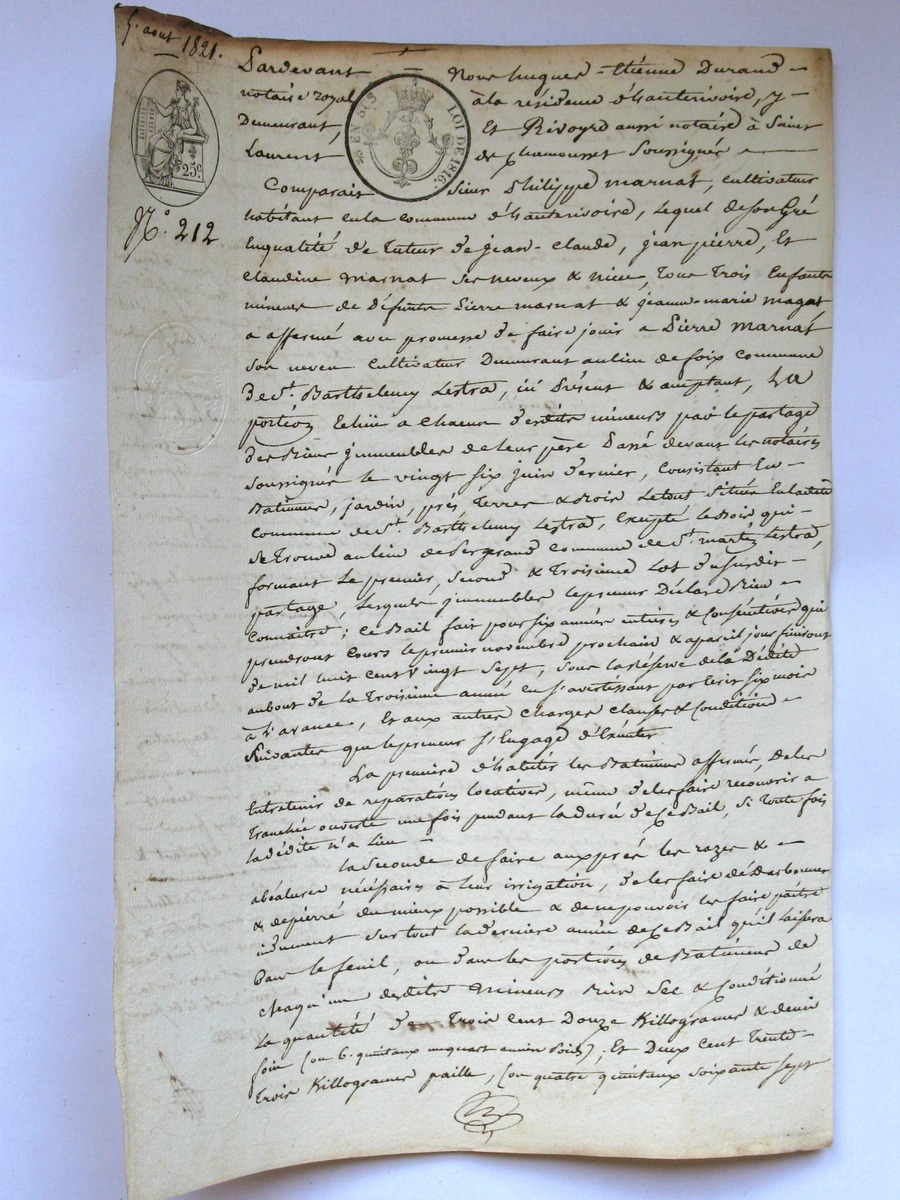 5. aout 1821.
Pardevant Nous hugues-Etienne Durand
notaire royal à la résidence d'hauterivoire, y
Demeurant, Et Rivoyre aussi notaire à Saint
Laurent de Chamousset Soussignés
25 EN SUS LOI DE 1816.
25c.
N.° 212
Comparait Sieur Philippe marnat, cultivateur
habitant en la commune d'hauterivoire, lequel de son Gré
Enqualité de tuteur de jean-claude, jean pierre, Et
claudine marnat ses neveux & niece, Tous Trois Enfants
mineurs de Défunts Pierre marnat & jeanne-marie magat
a affermé avec promesse de faire jouir a Pierre marnat
son neveu cultivateur Demeurant au lieu de foix commune
de St. Barthelemy Lestra, ici Présent & acceptant, La
portion Echüe a chacun desdits mineurs par le partage
des Biens jmmeubles de leur père Passé devant les notaires
soussignés le vingt six juin dernier, Consistant En
Batiments, jardin, prés, Terres & Bois Letout Situés En ladite
commune de St. Barthelemy Lestra, Excepté le Bois qui
se Trouve au lieu de commune de St. martin Lestra,
formant Le premier, second & Troisieme Lot dususdit
partage, Lesquels jmmeubles lepreneur Déclare Bien
Connaitre; Ce Bail fait pour six années entieres & Consécutives qui
prendront Cours le premier novembre prochain & apareil jour finiront
de mil huit cent vingt sept, sous la Réserve de la Dédite
aubout de la Troisieme année en s'avertissant par Ecrit six mois
à l'avance, Et aux autres charges clauses & Condition
Suivantes que lepreneur s'Engage d'Exécuter
La premiere d'habiter les Batiments affermés, de les
Entretenir de reparations locatives, même de les faire recouvrir a
Tranchée ouverte une fois pendant la durée de Ce Bail, si Toute fois
la dédite n'a lieu
La seconde de faire aux prés les razes &
nécéssaires à leur irrigation, de les faire
& depierré du mieux possible & de ne pouvoir les faire paitre
surtout la derniere année de Ce Bail qu'il laissera
Dans le fenil, ou dans les portions de Batiments de
chaqu'un desdits mineurs Bien Sec & Conditionné
la quantité de Trois cent Douze Killogrames & demi
foin (ou 6. quintaux unquart ancien Poids), Et Deux Cent Trente
Trois Killogrames paille, (ou quatre quintaux soixante sept